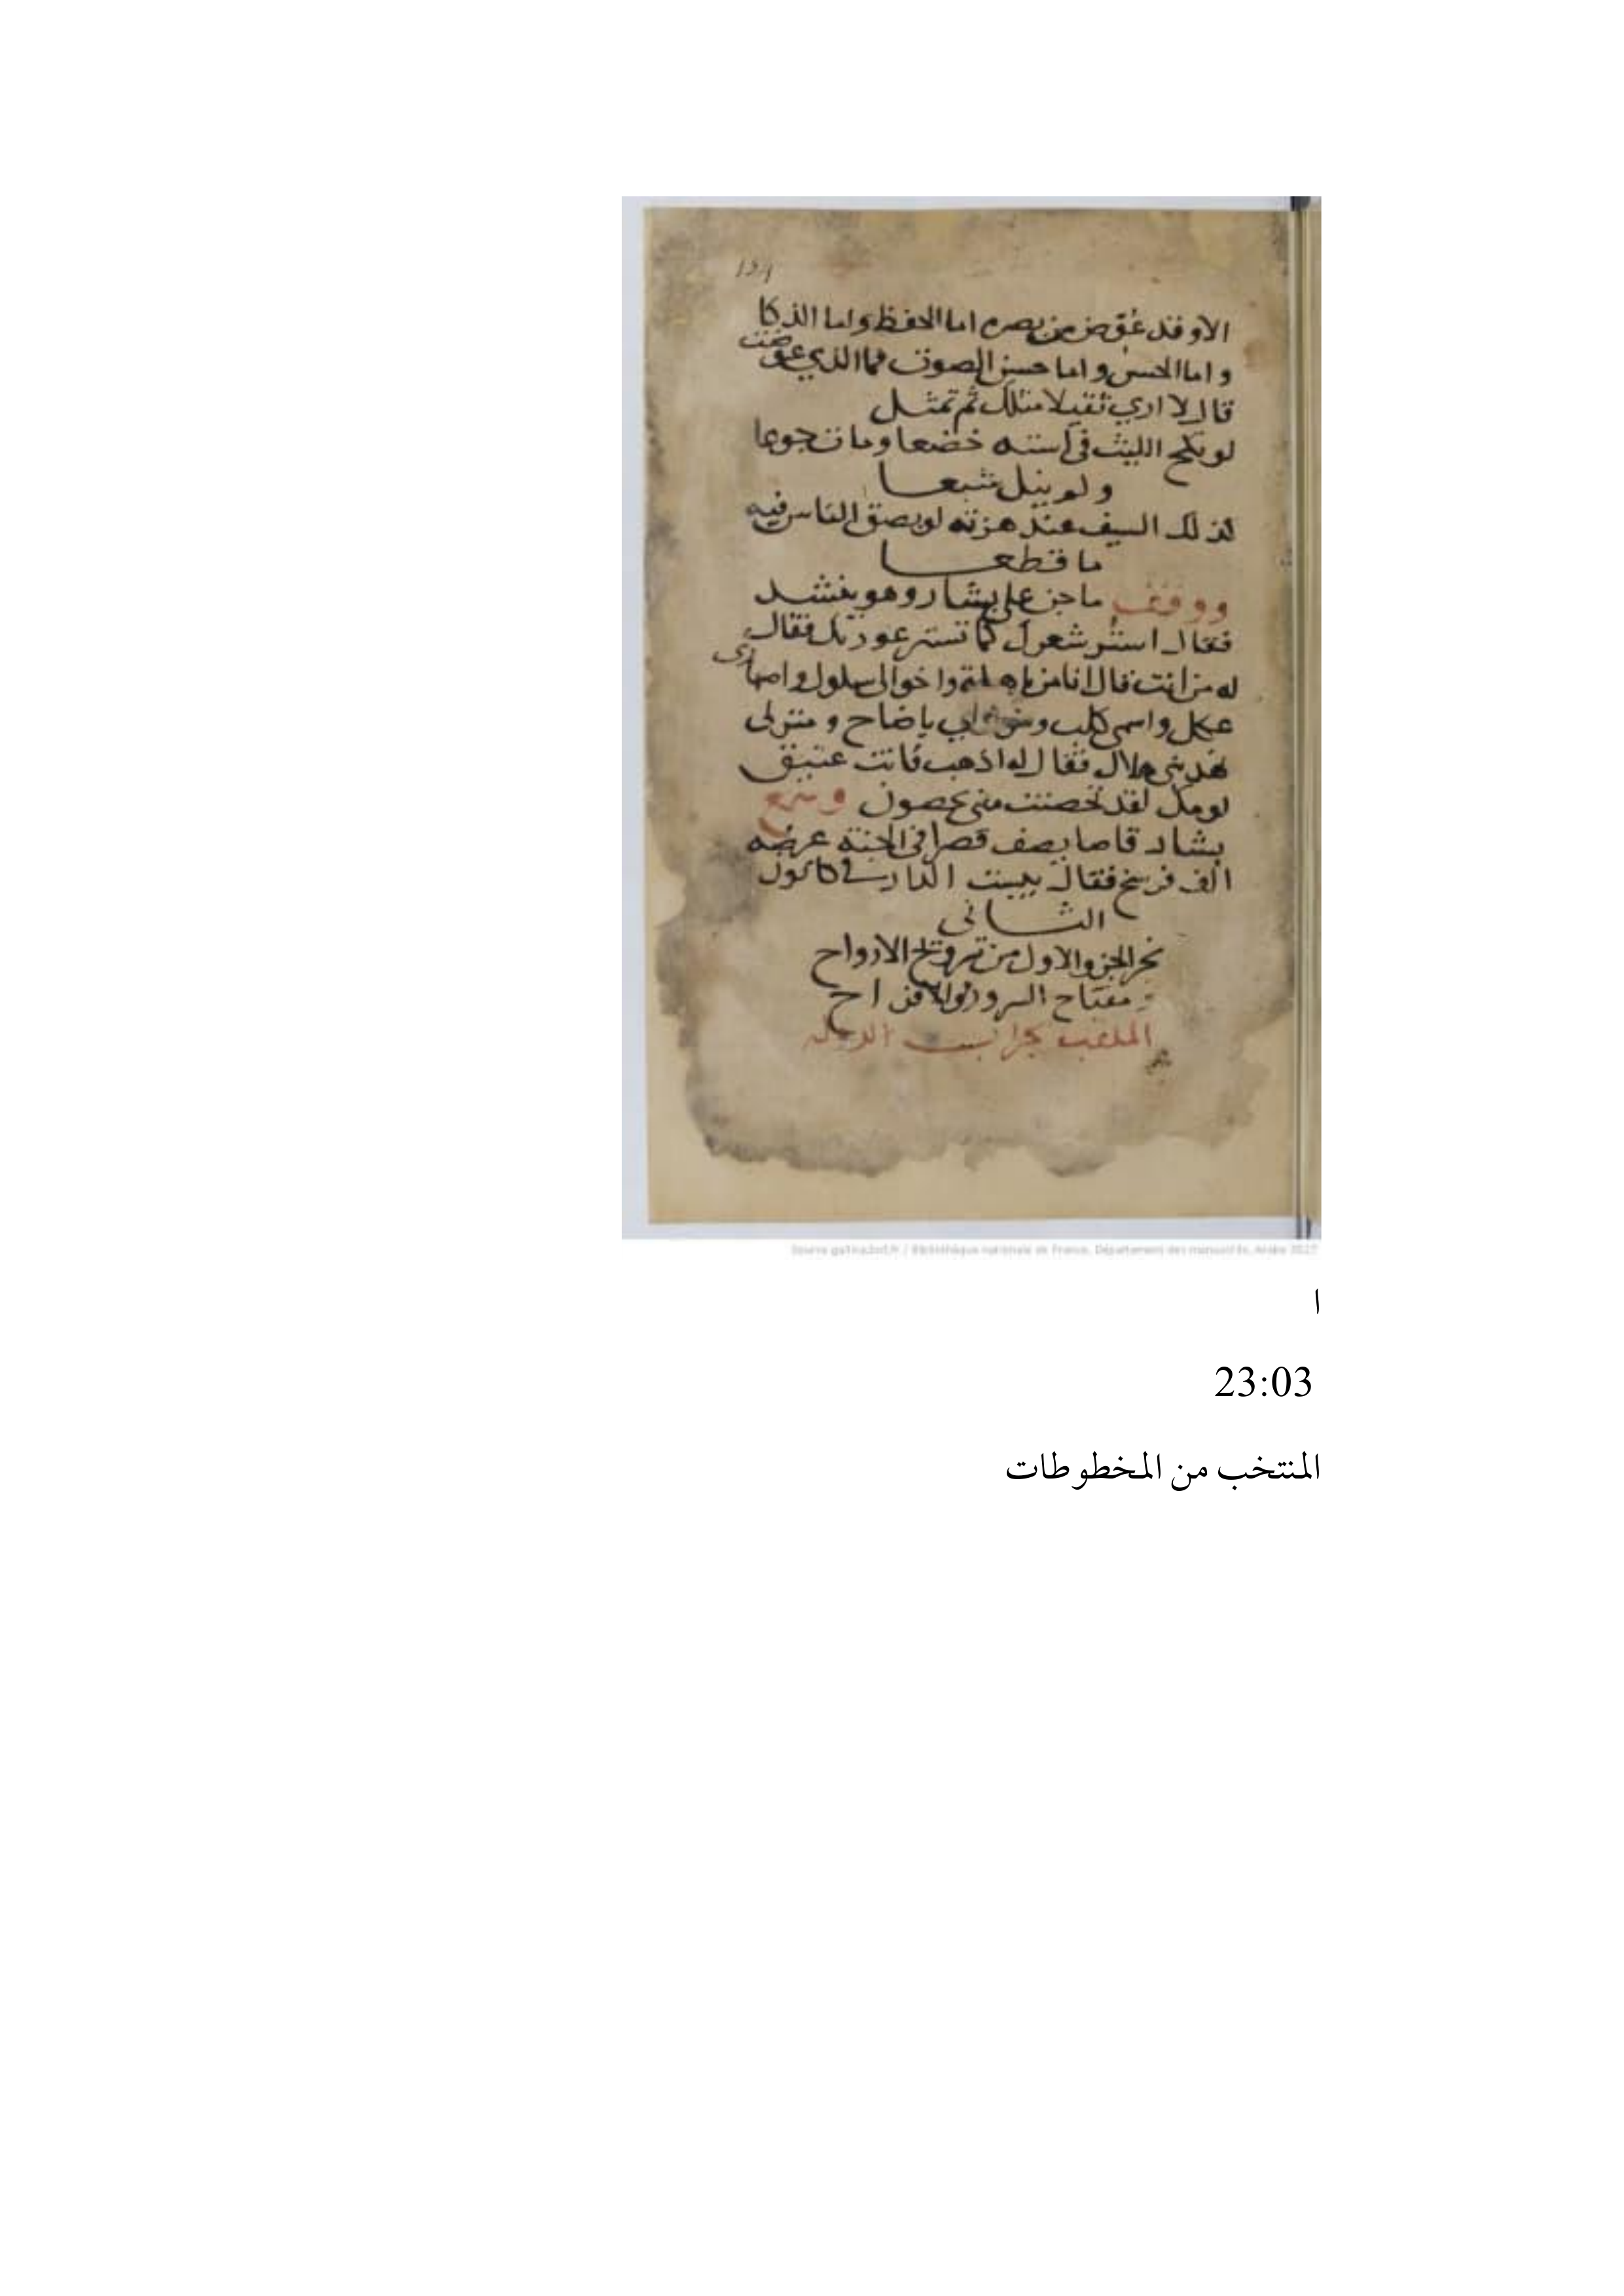 129
الا وقد عُوّض من بصره اما الحفظ واما الذكا
واما الحسن واما حسن الصوت فما الذي عوضت
قال لا اري ثقيلا مثلك ثم تمثل
لو نكح الليث في استه خضعا ومات جوعا
ولم ينل شبعا
كذلك السيف عند هزته لو بصق الناس فيه
ما قطعا
ووقف ماجن على بشار وهو ينشد
فقال استر شعرك كما تستر عورتك فقال
له من انت قال انا من باهلة واخوالى سلول واصهارى
عكل واسمى كلب باضاح ومنزلى
بنى هلال فقال له اذهب فانت عتيق
لومك لقد تحصنت منى بحصون وسمع
بشار قاصا يصف قصرا فى الجنة عرضه
الف فرسخ فقال بيست الدار فى كانون
الثانى
نجز الجزو الاول من ترويح الارواح
ومفتاح السرور والافراح
الملقب بجراب الدوله
Source gallica.bnf.fr / Bibliothèque nationale de France. Département des manuscrits. Arabe 3527
ا
23:03
المنتخب من المخطوطات